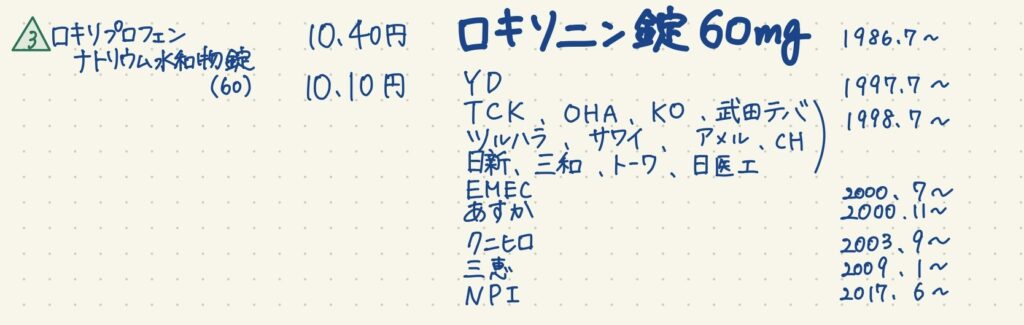 3 ロキソプロフェン 10.40円 ロキソニン錠60mg 1986.7〜
ナトリウム水和物錠
(60) 10.10円 YD 1997.7〜
TCK、OHA、KO、武田テバ 1998.7〜
ツルハラ、サワイ、アメル、CH
日新、三和、トーワ、日医工
EMEC 2000.7〜
あすか 2000.11〜
クニヒロ 2003.9〜
三恵 2009.1〜
NPI 2017.6〜